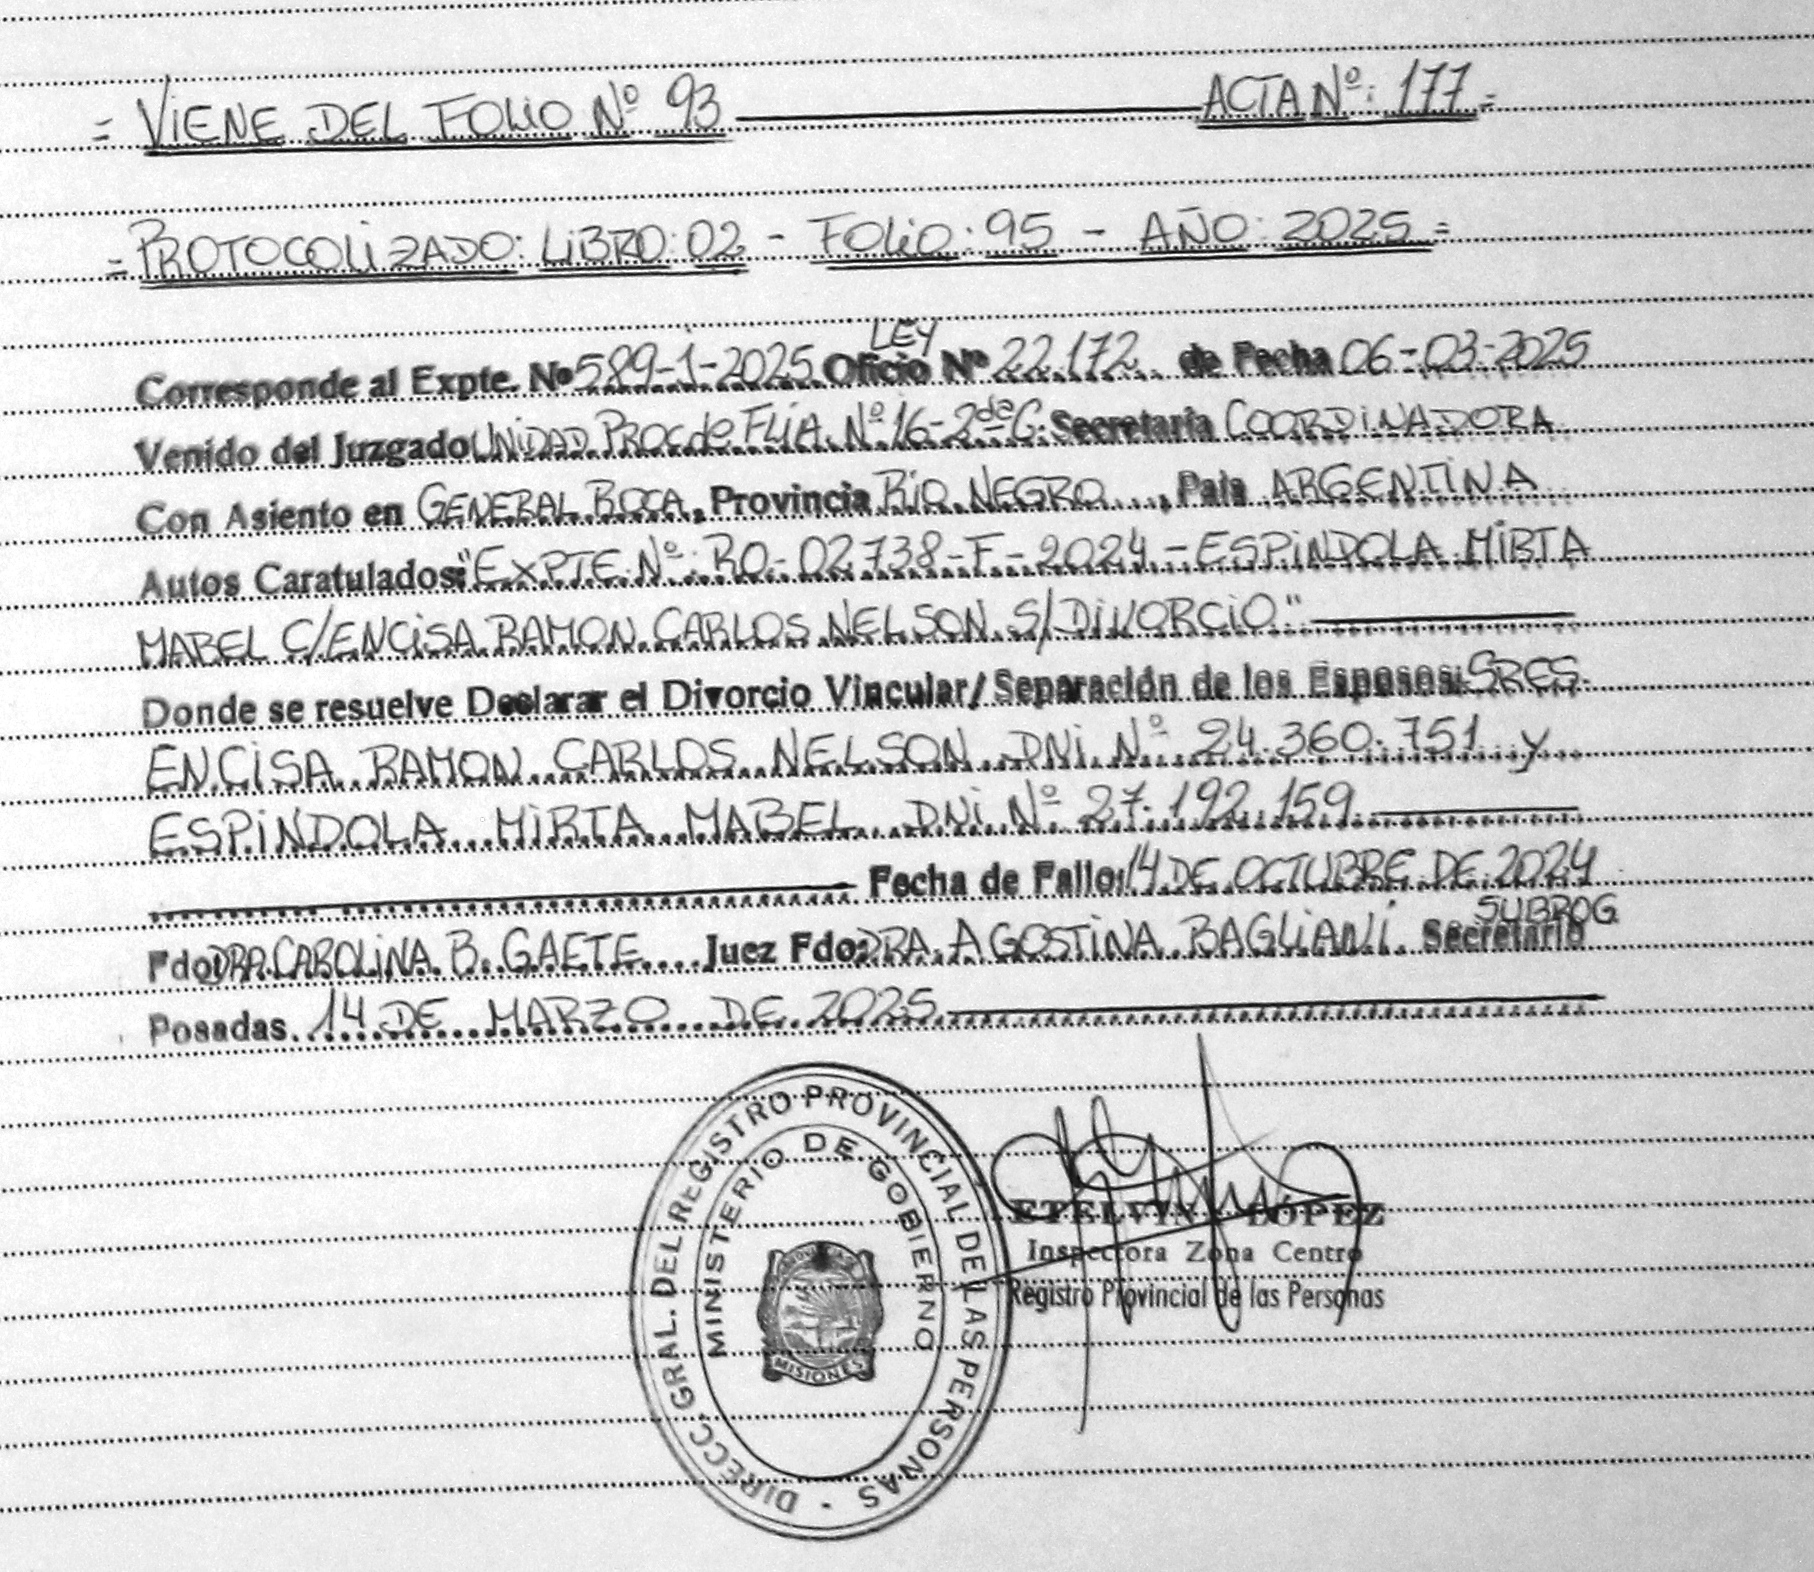 = VIENE DEL FOLIO Nº 93 ACTA Nº: 177 =
= PROTOCOLIZADO: LIBRO: 02 - FOLIO: 95 - AÑO: 2025 =
LEY
Corresponde al Expte. Nº 589-1-2025 Oficio Nº 22.172 de Fecha 06-03-2025
Venido del Juzgado UNIDAD PROC de FLIA. Nº 16-2da C. Secretaría COORDINADORA
Con Asiento en GENERAL ROCA, Provincia RIO NEGRO, País ARGENTINA
Autos Caratulados: "EXPTE. Nº: RO-02738-F-2024 - ESPINDOLA MIRTA
MABEL C/ ENCISA RAMON CARLOS NELSON S/ DIVORCIO"
Donde se resuelve Declarar el Divorcio Vincular/Separación de los Esposos: SRES.
ENCISA RAMON CARLOS NELSON DNI Nº 24.360.751 y
ESPINDOLA MIRTA MABEL DNI Nº 27.192.159
Fecha de Fallo: 14 DE OCTUBRE DE 2024
SUBROG
Fdo: DRA. CAROLINA B. GAETE Juez Fdo: DRA AGOSTINA BAGLIANI Secretario
Posadas, 14 DE MARZO DE 2025
DIRECC. GRAL. DEL REGISTRO PROVINCIAL DE LAS PERSONAS -
MINISTERIO DE GOBIERNO
MISIONES
ETELVINA LÓPEZ
Inspectora Zona Centro
Registro Provincial de las Personas